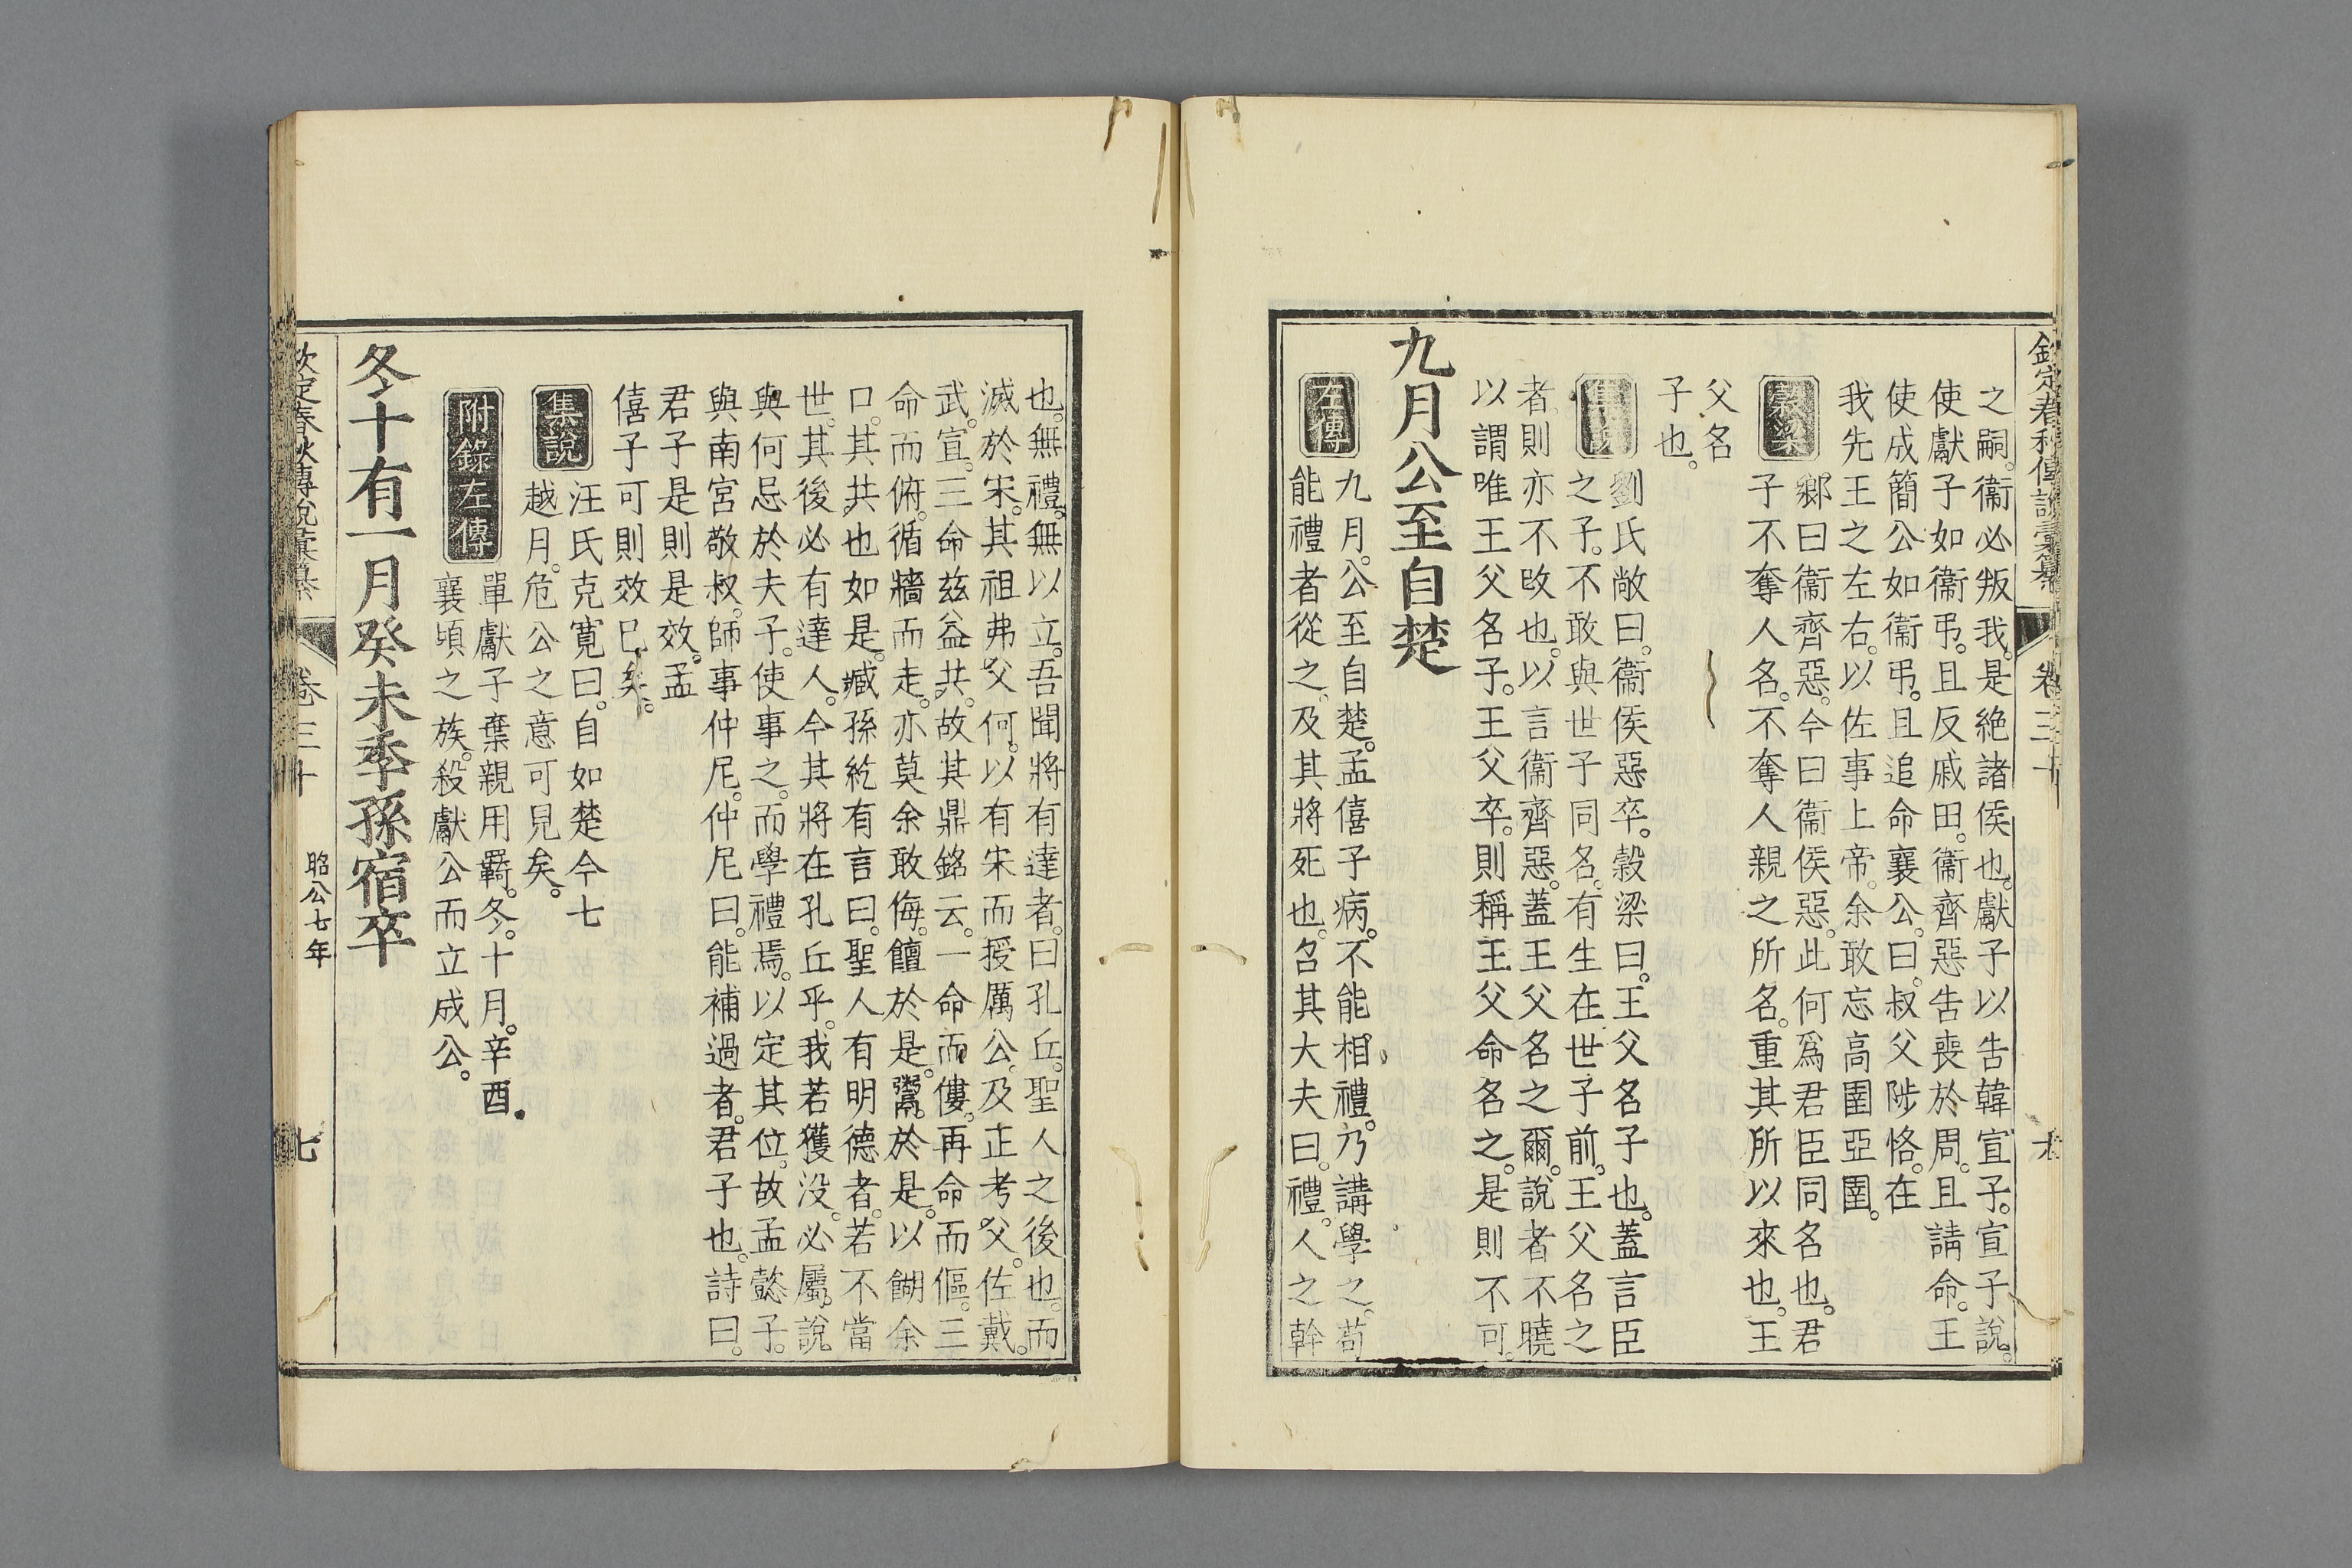 之嗣。衞必叛我。是絶諸侯也。獻子以告韓宣子。宣子說。
使獻子如衞弔。且反戚田。衞齊惡告喪於周。且請命。王
使成簡公如衞弔。且追命襄公。曰。叔父陟恪。在
我先王之左右。以佐事上帝。余敢忘高圉亞圉。
穀梁
鄉曰衞齊惡。今曰衞侯惡。此何爲君臣同名也。君
子不奪人名。不奪人親之所名。重其所以來也。王
父名
子也。
集說
劉氏敞曰。衞侯惡卒。穀梁曰。王父名子也。蓋言臣
之子。不敢與世子同名。有生在世子前。王父名之
者。則亦不改也。以言衞齊惡。蓋王父名之爾。說者不曉
以謂唯王父名子。王父卒。則稱王父命名之。是則不可。
九月公至自楚
左傳
九月。公至自楚。孟僖子病。不能相禮。乃講學之。苟
能禮者從之。及其將死也。召其大夫曰。禮。人之幹
也。無禮。無以立。吾聞將有達者。曰孔丘。聖人之後也。而
滅於宋。其祖弗父何。以有宋而授厲公。及正考父。佐戴。
武。宣。三命兹益共。故其鼎銘云。一命而僂。再命而傴。三
命而俯。循牆而走。亦莫余敢侮。饘於是。鬻於是。以餬余
口。其共也如是。臧孫紇有言曰。聖人有明德者。若不當
世。其後必有達人。今其將在孔丘乎。我若獲没。必屬說
與何忌於夫子。使事之。而學禮焉。以定其位。故孟懿子。
與南宮敬叔。師事仲尼。仲尼曰。能補過者。君子也。詩曰。
君子是則是效。孟
僖子可則效已矣。
集說
汪氏克寬曰。自如楚今七
越月。危公之意可見矣。
附錄左傳
單獻子棄親用羇。冬。十月。辛酉。
襄頃之族。殺獻公而立成公。
冬十有一月癸未季孫宿卒
欽定春秋傳說彙纂
卷三十
昭公七年
七